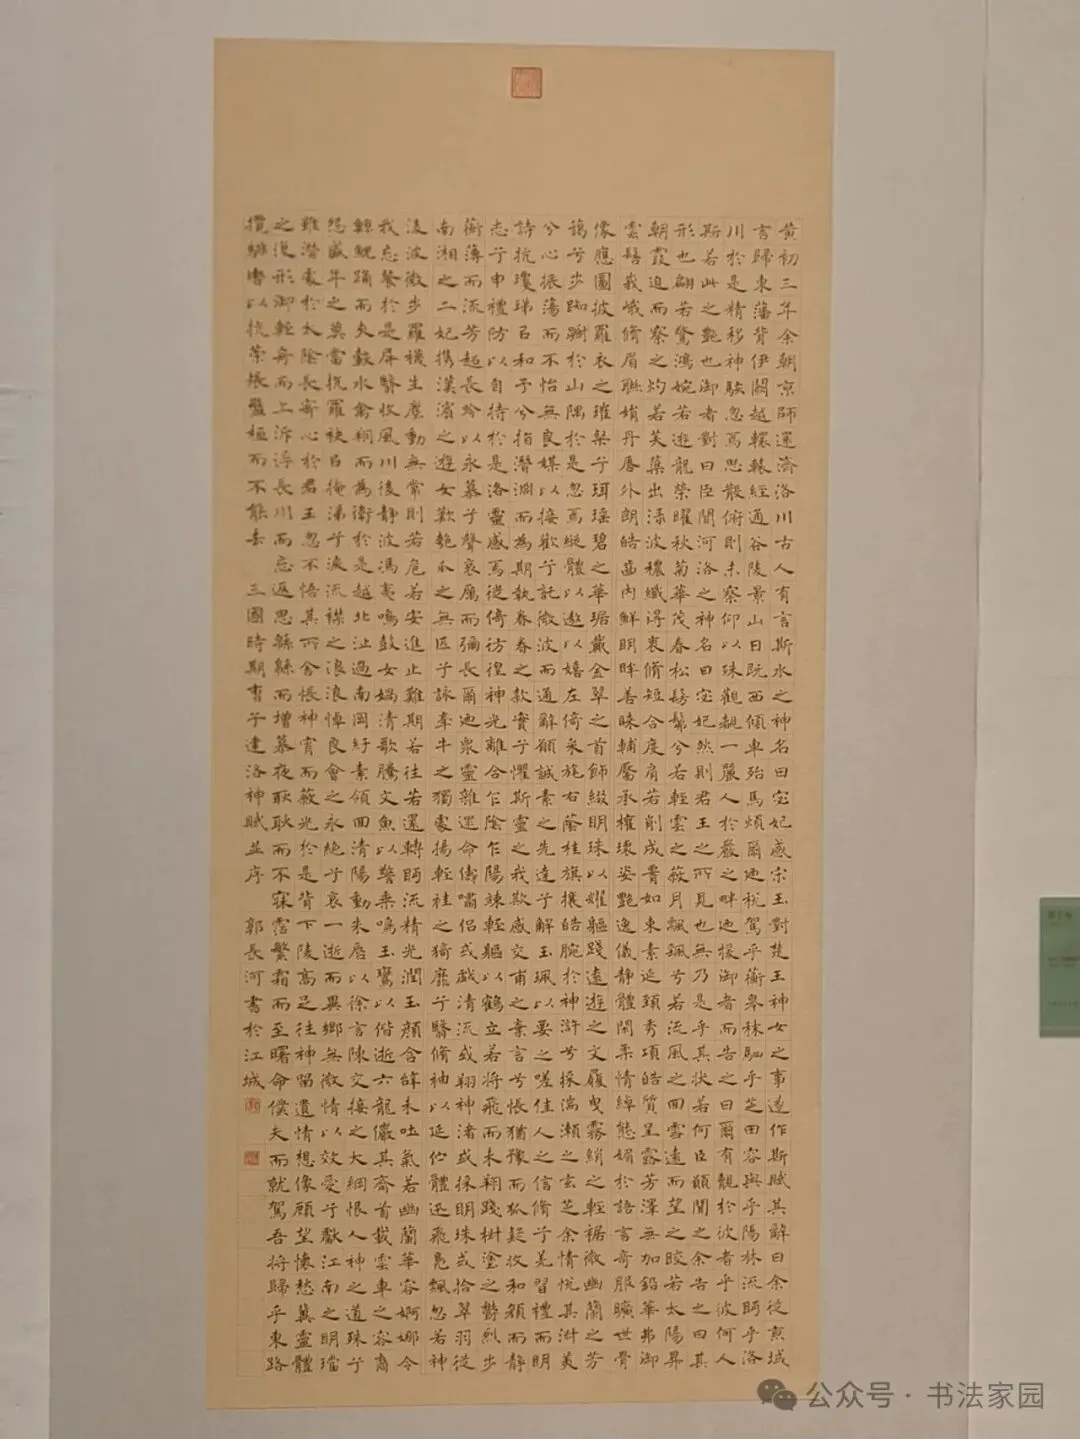 黃初三年余朝京師還濟洛川古人有言斯水之神名曰宓妃感宋玉對楚王神女之事遂作斯賦其辭曰余從京域
言歸東藩背伊闕越轘轅經通谷陵景山日既西傾車殆馬煩爾迺稅駕乎蘅皋秣駟乎芝田容與乎陽林流眄乎洛
川於是精移神駭忽焉思散俯則未察仰以殊觀覩一麗人於巖之畔迺援御者而告之曰爾有覿於彼者乎彼何人
斯若此之艷也御者對曰臣聞河洛之神名曰宓妃然則君王之所見也無乃是乎其狀若何臣願聞之余告之曰其
形也翩若驚鴻婉若遊龍榮曜秋菊華茂春松髣髴兮若輕雲之蔽月飄颻兮若流風之回雪遠而望之皎若太陽昇
朝霞迫而察之灼若芙蕖出淥波穠纖得衷脩短合度肩若削成腰如束素延頸秀項皓質呈露芳澤無加鉛華弗御
雲髻峩峨脩眉聯娟丹唇外朗皓齒內鮮明眸善睞輔靨承權瓌姿艷逸儀靜體閑柔情綽態媚於語言奇服曠世骨
像應圖披羅衣之璀粲兮珥瑤碧之華琚戴金翠之首飾綴明珠以耀軀踐遠遊之文履曳霧綃之輕裾微幽蘭之芳
藹兮步踟躕於山隅於是忽焉縱體以遨以嬉左倚采旄右蔭桂旗攘皓腕於神滸兮採湍瀨之玄芝余情悅其淑美
兮心振蕩而不怡無良媒以接歡兮託微波而通辭願誠素之先達兮解玉珮以要之嗟佳人之信脩兮羌習禮而明
詩抗瓊珶以和予兮指潛淵而為期執眷眷之款實兮懼斯靈之我欺感交甫之棄言兮悵猶豫而狐疑收和顏而靜
志兮申禮防以自持於是洛靈感焉徙倚彷徨神光離合乍陰乍陽竦輕軀以鶴立若將飛而未翔踐椒塗之鬱烈步
蘅薄而流芳超長吟以永慕兮聲哀厲而彌長爾迺衆靈雜遝命儔嘯侶或戲清流或翔神渚或採明珠或拾翠羽從
南湘之二妃攜漢濱之遊女歎匏瓜之無匹兮詠牽牛之獨處揚輕袿之猗靡兮翳脩袖以延佇體迅飛鳧飄忽若神
淩波微步羅襪生塵動無常則若危若安進止難期若往若還轉眄流精光潤玉顏含辭未吐氣若幽蘭華容婀娜令
我忘餐於是屏翳收風川後靜波馮夷鳴鼓女媧清歌騰文魚以警乘鳴玉鸞以偕逝六龍儼其齊首載雲車之容裔
鯨鯢踊而夾轂水禽翔而為衛於是越北沚過南岡紆素領回清陽動朱唇以徐言陳交接之大綱恨人神之道殊兮
怨盛年之莫當抗羅袂以掩涕兮淚流襟之浪浪悼良會之永絕兮哀一逝而異鄉無微情以效愛兮獻江南之明璫
雖潛處於太陰長寄心於君王忽不悟其所舍悵神宵而蔽光於是背下陵高足往神留遺情想像顧望懷愁冀靈體
之復形御輕舟而上泝浮長川而忘返思緜緜而增慕夜耿耿而不寐霑繁霜而至曙命僕夫而就駕吾將歸乎東路
攬騑轡以抗策悵盤桓而不能去 三國時期曹子建洛神賦並序 郭長河書於江城
公众号·书法家园